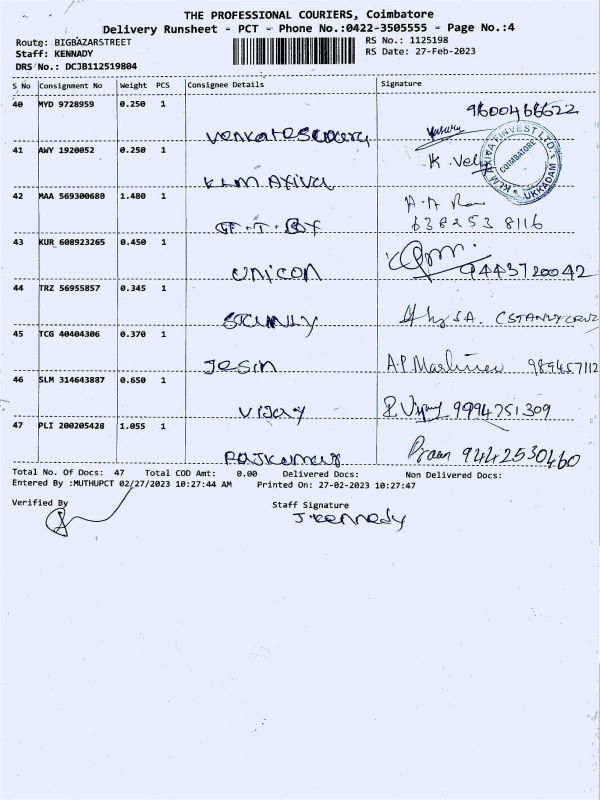 THE PROFESSIONAL COURIERS, Coimbatore
Delivery Runsheet - PCT - Phone No.:0422-3505555 - Page No.:4
Route: BIGBAZARSTREET RS No.: 1125198
Staff: KENNADY RS Date: 27-Feb-2023
DRS No.: DCJB112519804
S No Consignment No Weight PCS Consignee Details Signature
40 MYD 9728959 0.250 1 9600466622
venkateswara
41 AWY 1920052 0.250 1 K. Velu
KLM AXIVA
KLM AXIVA FINVEST LTD. COIMBATORE * UKKADAM *
42 MAA 569300680 1.480 1
638253 8116
43 KUR 608923265 0.450 1
unicon 9443720042
44 TRZ 56955857 0.345 1
Stanly S.A. CSTANLYCRUZ
45 TCG 40404306 0.370 1
Jesin A.P. 989457112
46 SLM 314643887 0.650 1
Vijay P. Vijay 9994751309
47 PLI 200205428 1.055 1
Rajkumar 9442530460
Total No. Of Docs: 47 Total COD Amt: 0.00 Delivered Docs: Non Delivered Docs:
Entered By :MUTHUPCT 02/27/2023 10:27:44 AM Printed On: 27-02-2023 10:27:47
Verified By Staff Signature
J. Kennedy